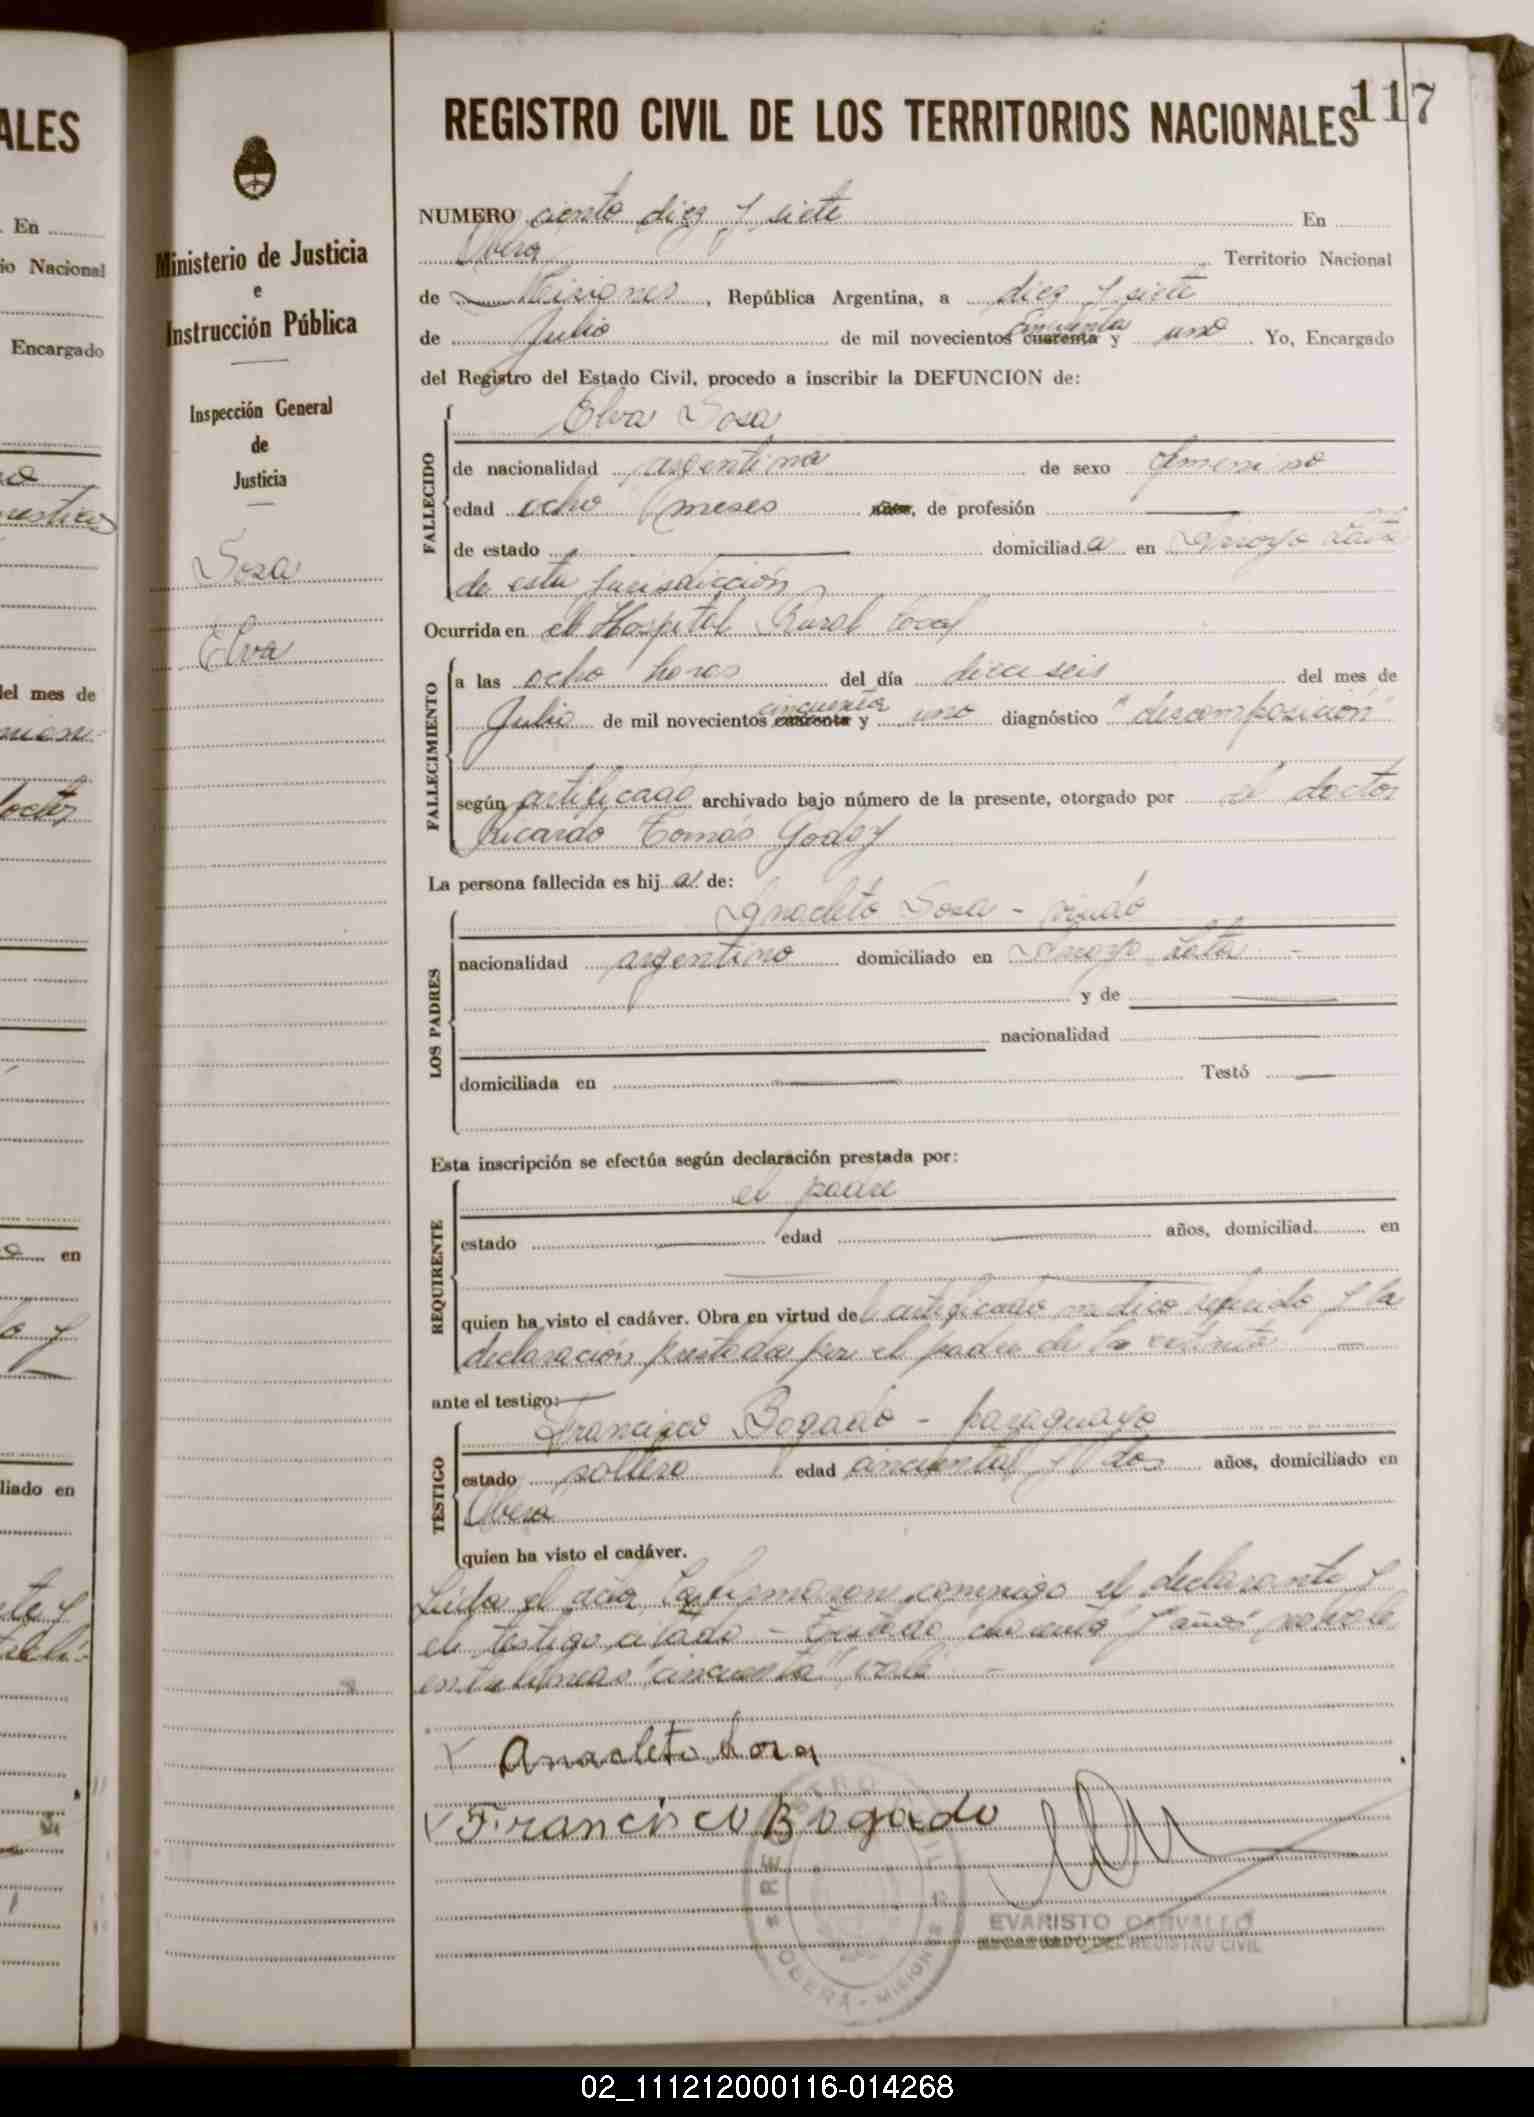 117
REGISTRO CIVIL DE LOS TERRITORIOS NACIONALES
ALES
Ministerio de Justicia
e
Instrucción Pública
Inspección General
de
Justicia
Sosa
Elva
NUMERO ciento diez y siete En
Oberá Territorio Nacional
de Misiones, República Argentina, a diez y siete
de Julio de mil novecientos cincuenta cuarenta y uno. Yo, Encargado
del Registro del Estado Civil, procedo a inscribir la DEFUNCION de:
FALLECIDO
Elva Sosa
de nacionalidad argentina de sexo femenino
edad ocho meses años, de profesión
de estado domiciliada en Arroyo
de esta jurisdicción
Ocurrida en el Hospital Rural local
FALLECIMIENTO
a las ocho horas del día dieciseis del mes de
Julio de mil novecientos cincuenta cuarenta y uno diagnóstico "descomposición"
según certificado archivado bajo número de la presente, otorgado por el doctor
Ricardo Tomás Godoy
La persona fallecida es hija de:
LOS PADRES
Anacleto Sosa - viudo
nacionalidad argentino domiciliado en Arroyo
y de
nacionalidad
domiciliada en Testó
Esta inscripción se efectúa según declaración prestada por:
REQUIRENTE
el padre
estado edad años, domiciliad en
quien ha visto el cadáver. Obra en virtud del certificado médico referido y la
declaración prestada por el padre de la extinta
ante el testigo:
TESTIGO
Francisco Bogado - paraguayo
estado soltero edad cincuenta y dos años, domiciliado en
Oberá
quien ha visto el cadáver.
Leída el acta, la firmaron conmigo el declarante y
el testigo citado - Testado "cuarenta" y "años" no vale
entre lineas "cincuenta" vale -
Anacleto Sosa
Francisco Bogado
REGISTRO CIVIL
OBERÁ - MISIONES
EVARISTO CARVALLO
ENCARGADO DEL REGISTRO CIVIL
02_111212000116-014268